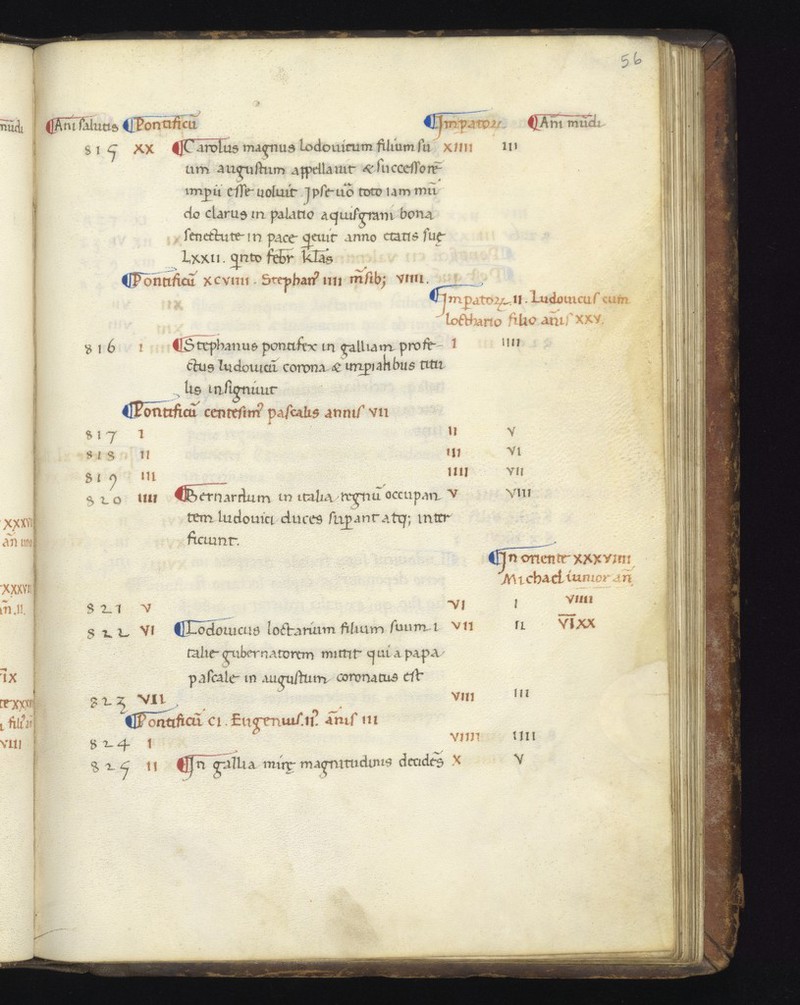 56
¶Ani salutis ¶Pontificū ¶Imperator̄ ¶Ani mūdi
815 XX ¶Carolus magnus Lodouicum filium su XIIII III
um augustum appellauit & successorē
imperii esse uoluit Ipse uō toto iam mū
do clarus in palatio aquisgrani bona
senectute in pace q̇euit anno etatis suę
LXXII. q̇nto febr̄ kl̄as
¶Pontificū XCVIIII. Stephan⁹ IIII m̄sib; VIIII.
¶Imperator̄ II. Ludouicus cum
locthario filio anis XXV.
816 I ¶Stephanus pontifex in galliam profe- I IIII
ctus ludouicū corona & imperialibus titu
lis insigniuit
¶Pontificū centesim⁹ pascalis annis VII
817 I II V
818 II III VI
819 III IIII VII
820 IIII ¶Bernardum in italia regnū occupan V VIII
tem ludouici duces superant atq; inter
ficiunt.
¶In oriente XXXVIIII
Michael iunior an̄
VIIII
821 V VI I
822 VI ¶Lodouicus loctarium filium suum i VII II VIXX
talie gubernatorem mittit qui a papa
pascale in augustum coronatus est
823 VII VIII III
¶Pontificū CI. Eugenius. II⁹. anis III
824 I VIIII IIII
825 II ¶In gallia mirę magnitudinis decidēs X V
mūdi
XXXVI
XXXVII
IX
VIII